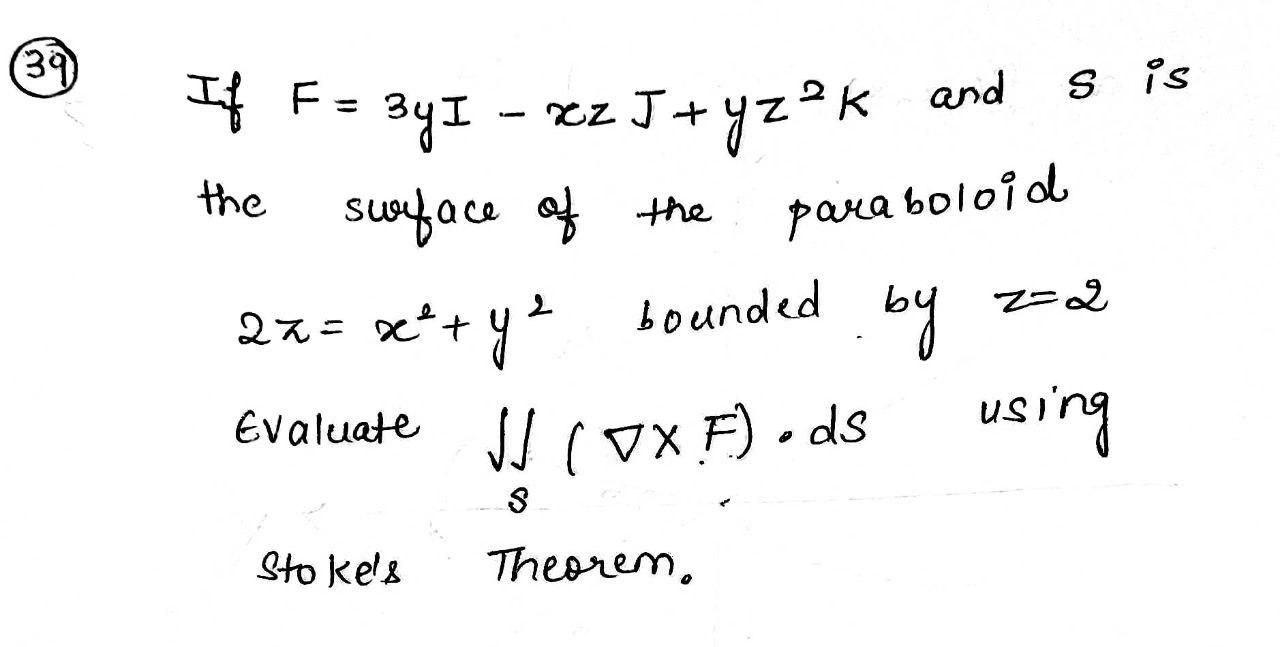 39
If F = 3yI - xz J + yz²K and S is
the surface of the paraboloid
2z = x² + y² bounded by z=2
Evaluate ∬ₛ (∇ × F) . ds using
Stoke's Theorem.